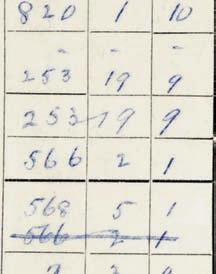 820 1 10
- - -
253 19 9
253 19 9
566 2 1
568 5 1
566 2 1